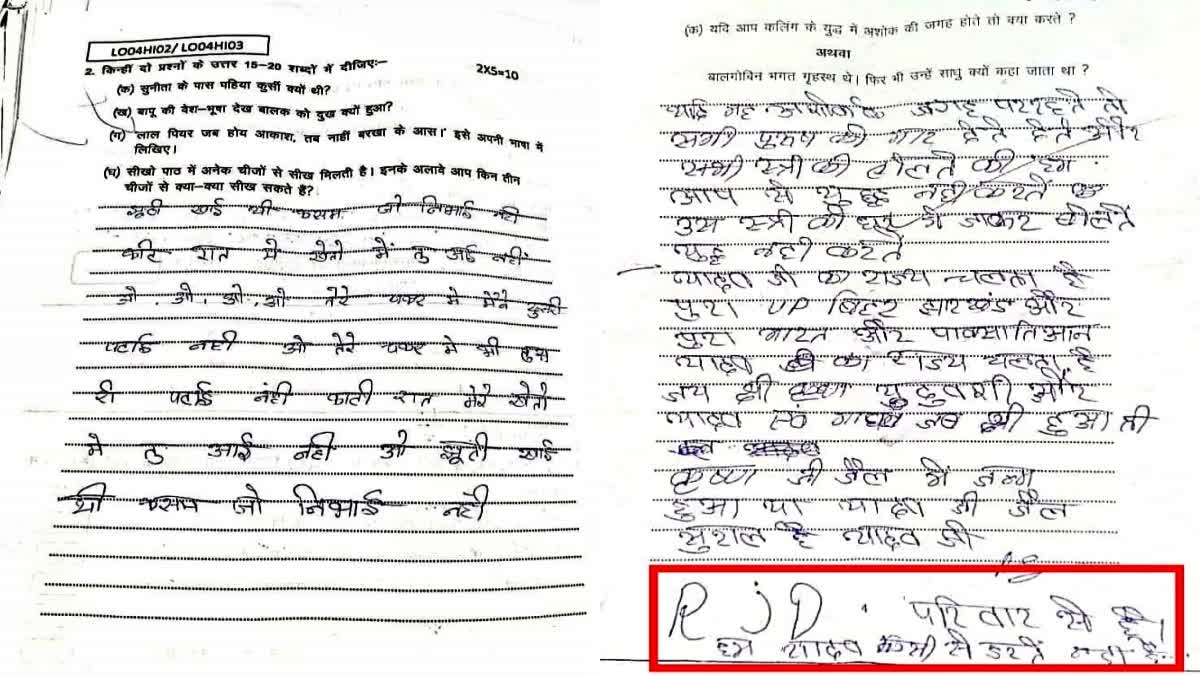 LO04HI02/ LO04HI03
2. किन्हीं दो प्रश्नों के उत्तर 15-20 शब्दों में दीजिए:- 2X5=10
(क) सुनीता के पास पहिया कुर्सी क्यों थी?
(ख) बापू की वेश-भूषा देख बालक को दुख क्यों हुआ?
(ग) लाल पियर जब होय आकाश, तब नाहीं बरखा के आस।' इसे अपनी भाषा में
लिखिए।
(घ) सीखो पाठ में अनेक चीजों से सीख मिलती है। इनके अलावे आप किन तीन
चीजों से क्या-क्या सीख सकते हैं?
झुठी खाई थी कसम जो निभाई नही
काटि रात मे खेतो में तु आई नहीं
ओ, ओ, ओ, ओ तेरे चक्कर मे मैंने
पढाई नही ओ तेरे चक्कर मे भी
री पढाई नंही काटी रात मेरे खेतो
मे तु आई नही ओ झूठी खाई
थी कसम जो निभाई नही
(क) यदि आप कलिंग के युद्ध में अशोक की जगह होते तो क्या करते ?
अथवा
बालगोबिन भगत गृहस्थ थे। फिर भी उन्हें साधु क्यों कहा जाता था ?
यदि जगह पर रहते तो
सभी पुरुष को मार देते और
सभी स्त्री को बोलते की हम
आप से युद्ध नही करतें
उस स्त्री को घर ले जाकर बोलतें
युद्ध नही करते
यादव जी का राज्य चलता है
पुरा UP बिहार झारखंड और
पुरा भारत और पाकसातिआन
यादव का राज्य चलता है
जय श्री कृष्णा युदुवशी और
यादव जब भी हुआ तो
कृष्ण जी जैल में जन्म
हुआ था यादव जी जैल
सुराल है यादव जी
RJD परिवार से है।
हम यादव किसी से डरते नही है.